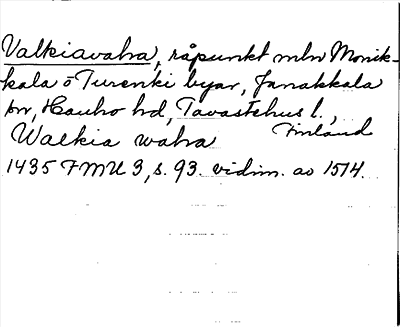 Valkiavaha, råpunkt mln Monik-
kala o Turenki byar, Janakkala
sn, Hauho hd, Tavastehus l.,
Finland
Walkia waha
1435 FMU 3, s. 93. vidim. ao 1514.